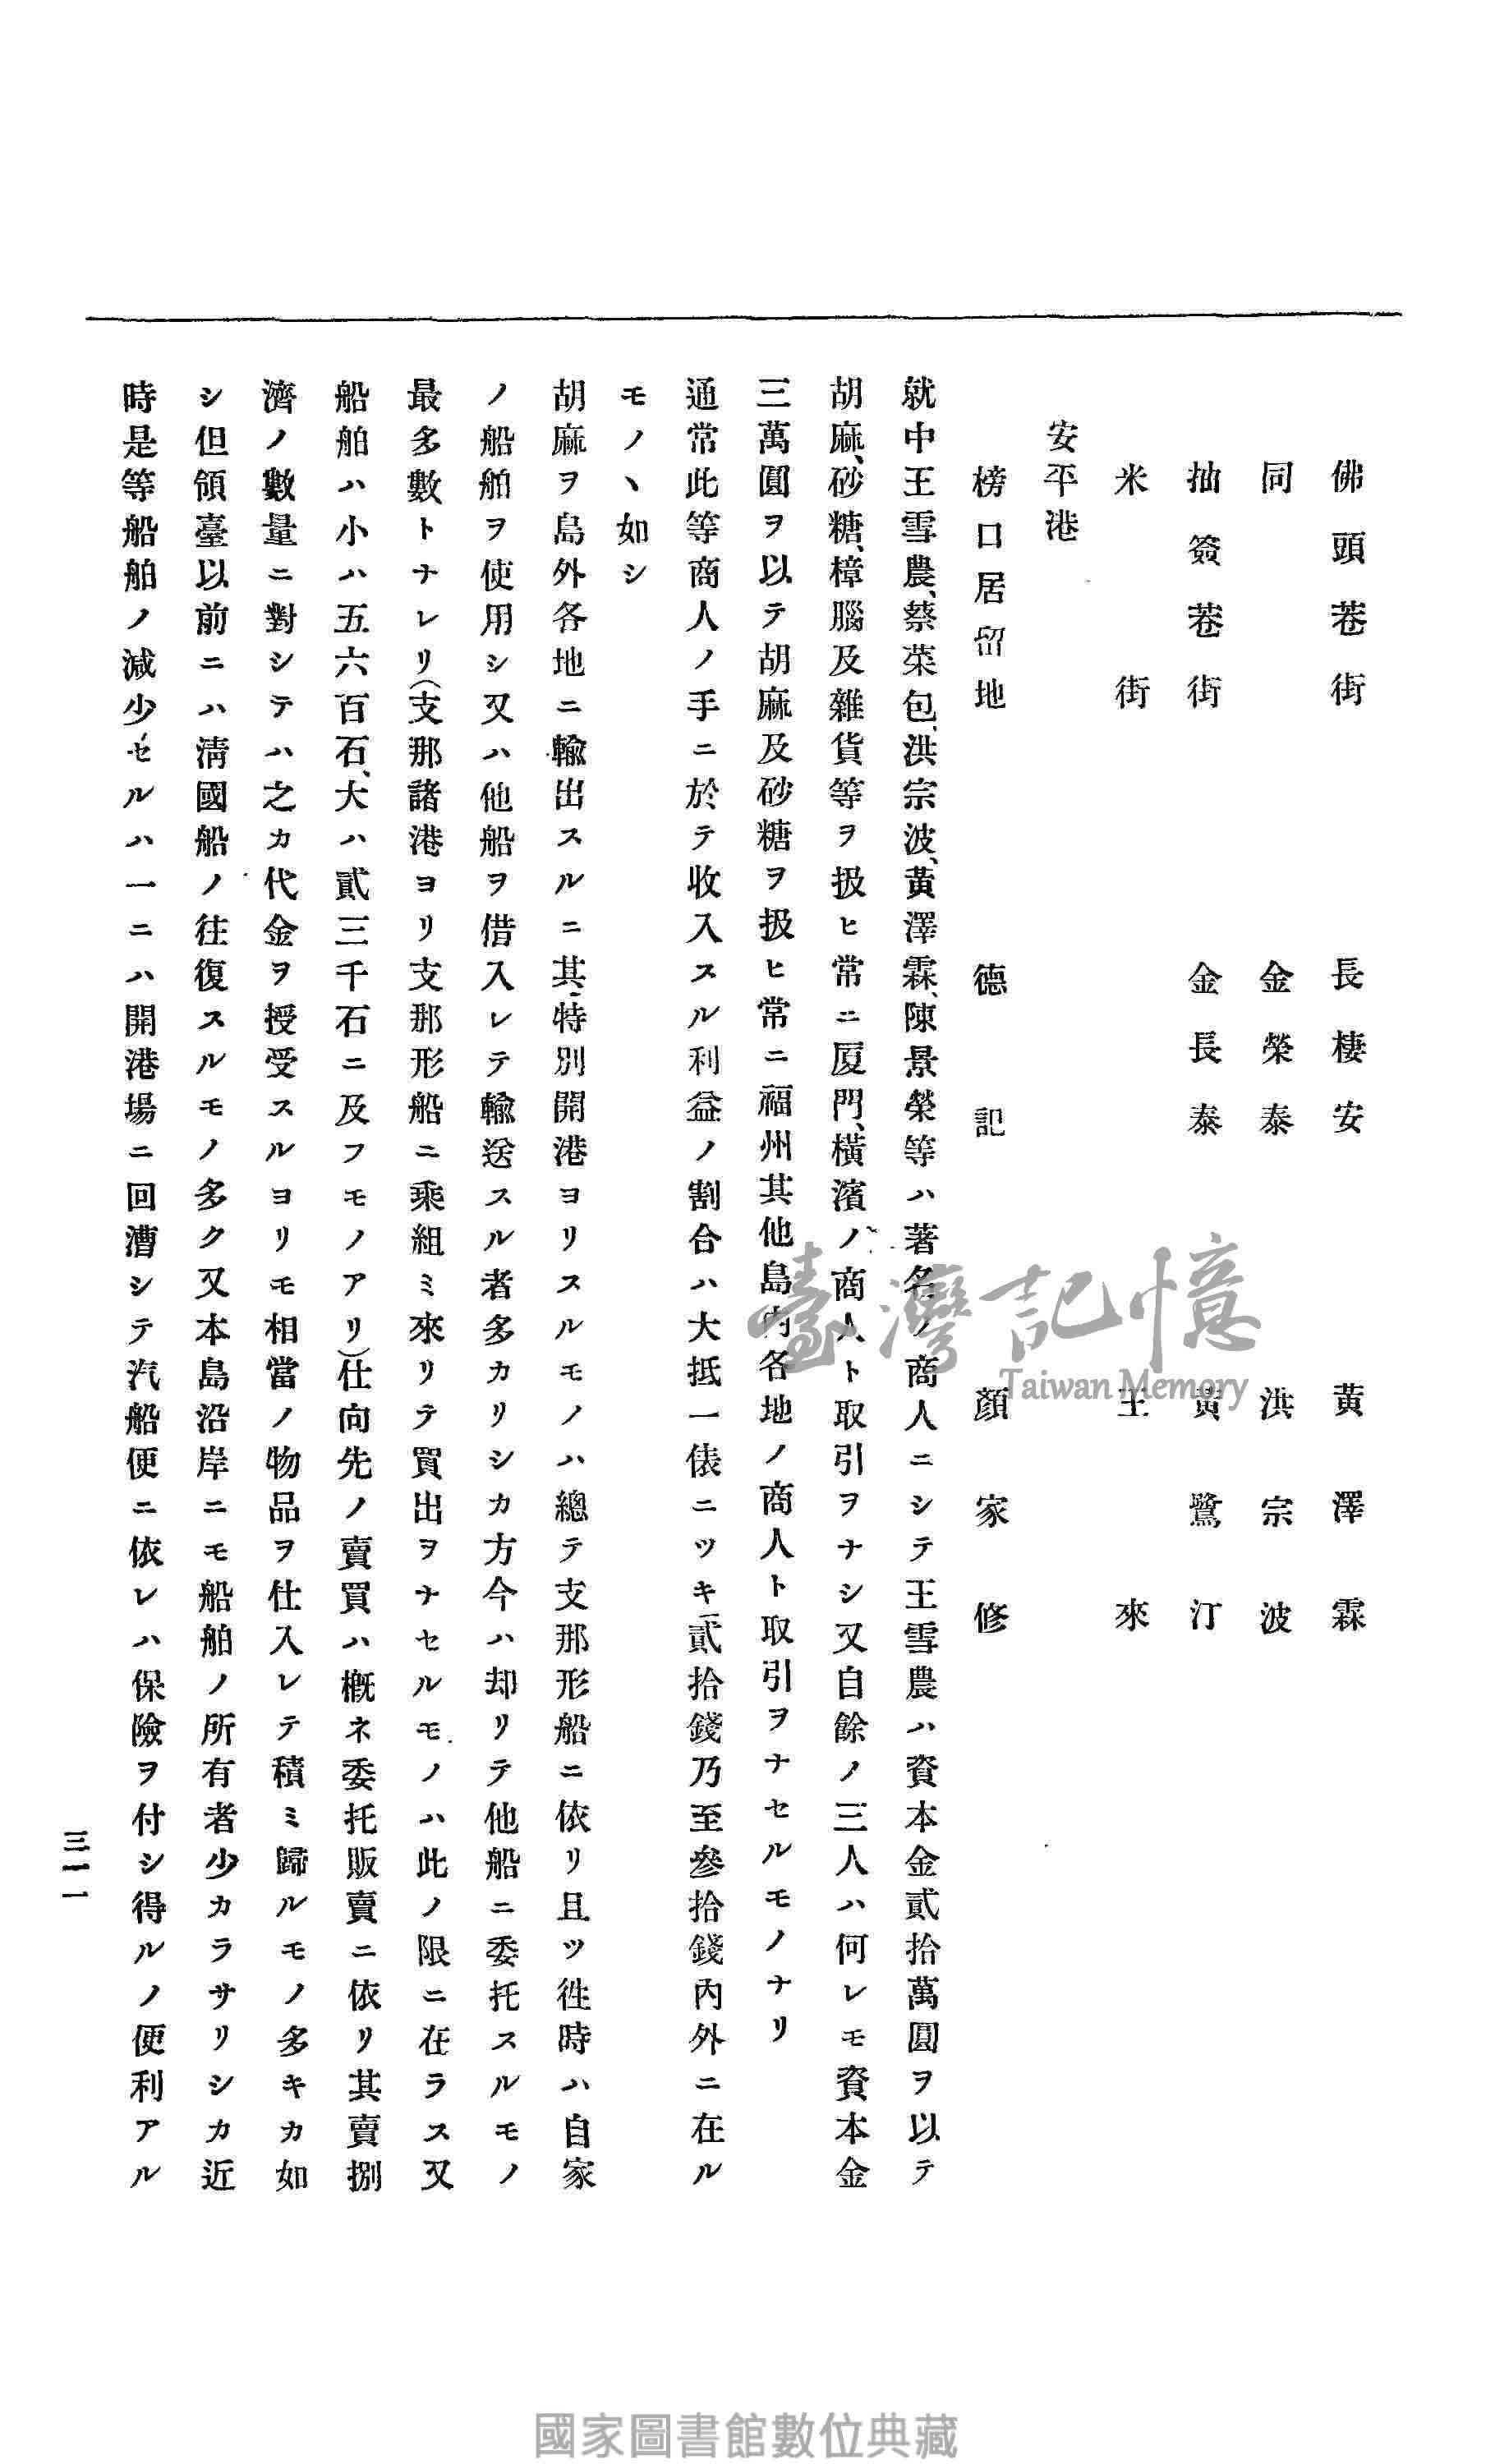 佛頭巷街　長棲安　黃澤霖
同　金榮泰　洪宗波
抽簽巷街　金長泰　黃鷺汀
米街　王來
安平港
榜口居留地　德記　顏家修
就中王雪農、蔡菜包、洪宗波、黃澤霖、陳景榮等ハ著名ノ商人ニシテ王雪農ハ資本金貳拾萬圓ヲ以テ
胡麻、砂糖、樟腦及雜貨等ヲ扱ヒ常ニ厦門、橫濱ノ商人ト取引ヲナシ又自餘ノ三人ハ何レモ資本金
三萬圓ヲ以テ胡麻及砂糖ヲ扱ヒ常ニ福州其他島內各地ノ商人ト取引ヲナセルモノナリ
通常此等商人ノ手ニ於テ收入スル利益ノ割合ハ大抵一俵ニツキ貳拾錢乃至參拾錢內外ニ在ル
モノヽ如シ
胡麻ヲ島外各地ニ輸出スルニ其特別開港ヨリスルモノハ總テ支那形船ニ依リ且ツ徃時ハ自家
ノ船舶ヲ使用シ又ハ他船ヲ借入レテ輸送スル者多カリシカ方今ハ却リテ他船ニ委托スルモノ
最多數トナレリ(支那諸港ヨリ支那形船ニ乘組ミ來リテ買出ヲナセルモノハ此ノ限ニ在ラス又
船舶ハ小ハ五六百石、大ハ貳三千石ニ及フモノアリ)仕向先ノ賣買ハ槪ネ委托販賣ニ依リ其賣捌
濟ノ數量ニ對シテハ之カ代金ヲ授受スルヨリモ相當ノ物品ヲ仕入レテ積ミ歸ルモノ多キカ如
シ但領臺以前ニハ淸國船ノ往復スルモノ多ク又本島沿岸ニモ船舶ノ所有者少カラサリシカ近
時是等船舶ノ減少セルハ一ニハ開港場ニ回漕シテ汽船便ニ依レハ保險ヲ付シ得ルノ便利アル
三一一
臺灣記憶
Taiwan Memory
國家圖書館數位典藏